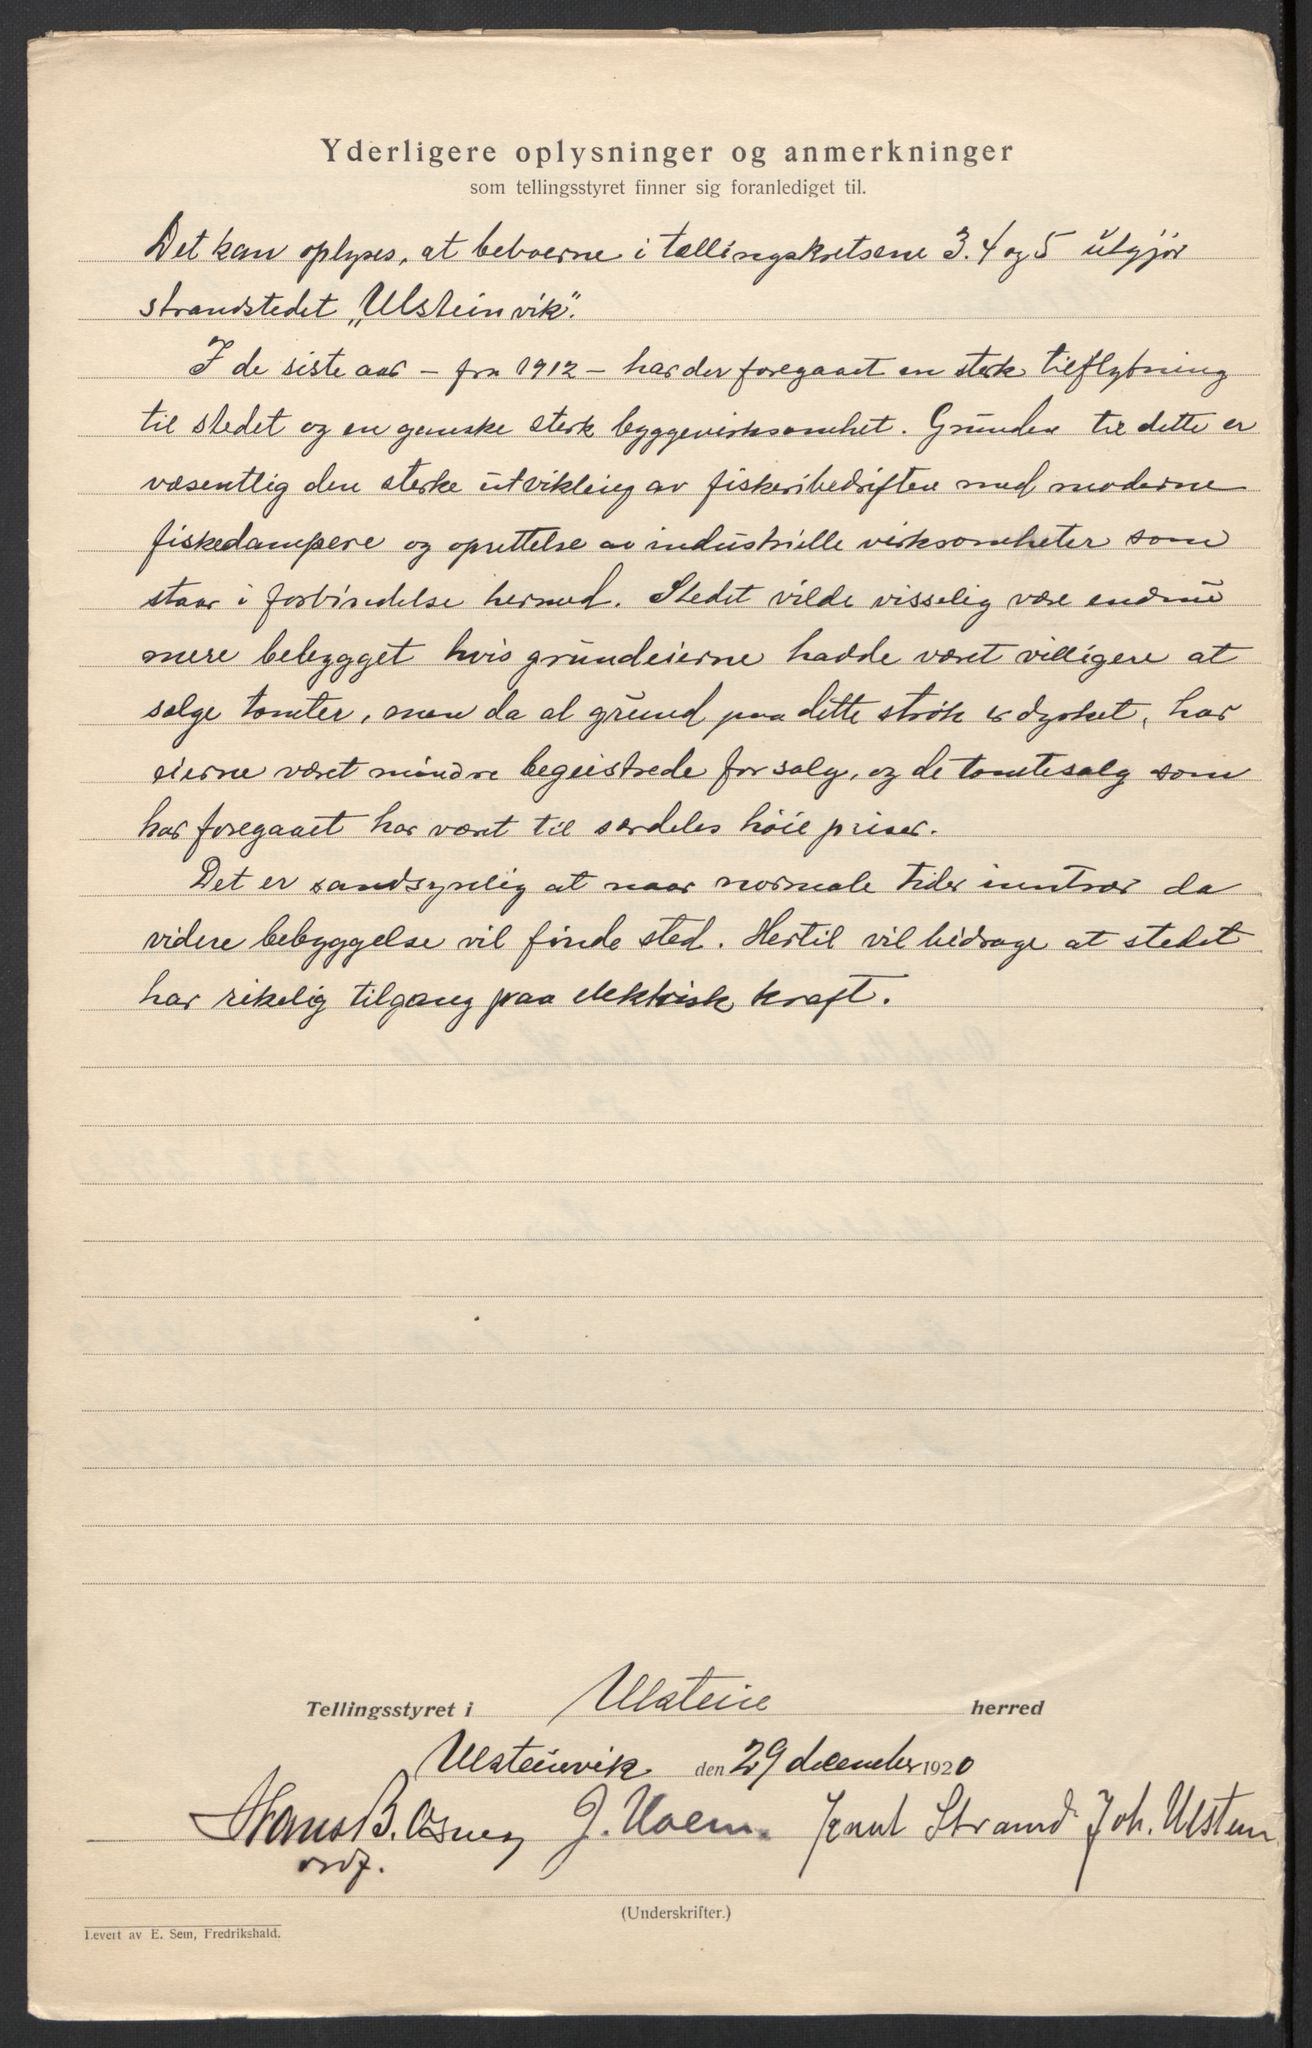 Yderligere oplysninger og anmerkninger
som tellingsstyret finner sig foranlediget til.
Det kan oplyses, at beboerne i tællingskretsene 3. 4 og 5 utgjør
strandstedet „Ulsteinvik".
I de siste aar – fra 1912 – har der foregaaet en sterk tilflytning
til stedet og en ganske sterk byggevirksomhet. Grunden til dette er
væsentlig den sterke utvikling av fiskeribedriften med moderne
fiskedampere og oprettelse av industrielle virksomheter som
staar i forbindelse hermed. Stedet vilde visselig være endnu
mere bebygget hvis grundeierne hadde været villigere at
sælge tomter, men da al grund paa dette strøk er dyrket, har
eierne været mindre begeistrede for salg, og de tomtesalg som
har foregaaet har været til særdeles høie priser.
Det er sandsynlig at naar normale tider inntrær da
videre bebyggelse vil finde sted. Hertil vil bidrage at stedet
har rikelig tilgang paa elektrisk kraft.
Tellingsstyret i Ulstein herred
Ulsteinvik den 29 december 1920
Hans B. Osnes J. Moen. Knut Strand Joh. Ulstein
ordf.
(Underskrifter.)
Levert av E. Sem, Fredrikshald.